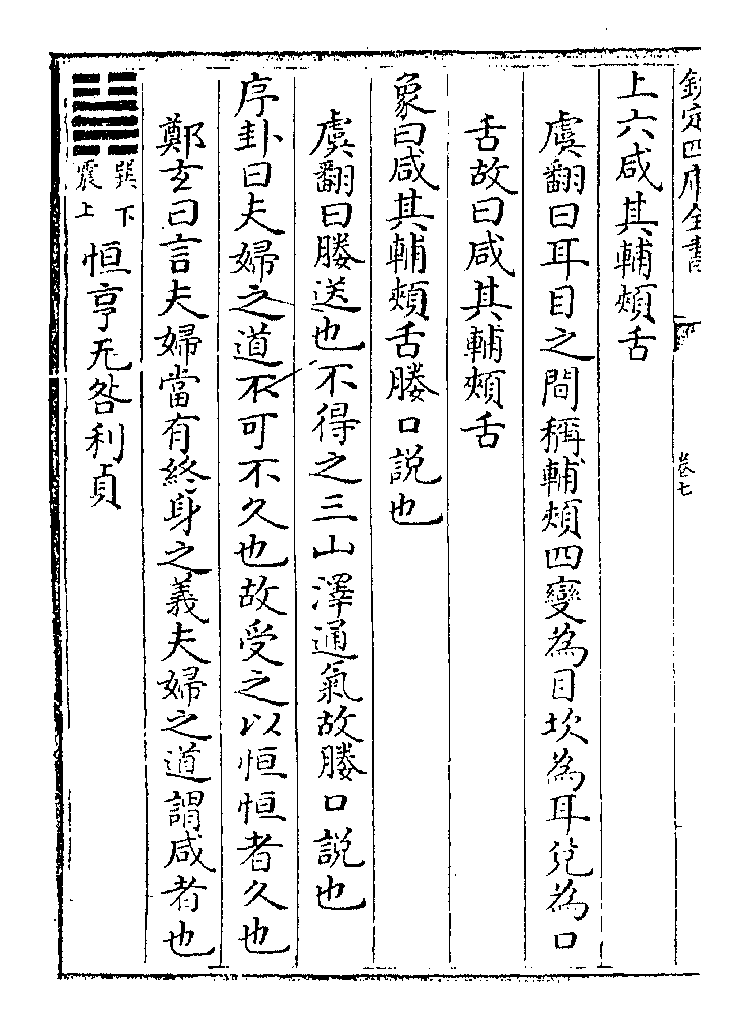 欽定四庫全書 卷七
上六咸其輔頰舌
虞翻曰耳目之間稱輔頰四變為目坎為耳兌為口
舌故曰咸其輔頰舌
象曰咸其輔頰舌媵口説也
虞翻曰媵送也不得之三山澤通氣故媵口説也
序卦曰夫婦之道不可不久也故受之以恒恒者久也
鄭玄曰言夫婦當有終身之義夫婦之道謂咸者也
䷟巽下震上恒亨无咎利貞